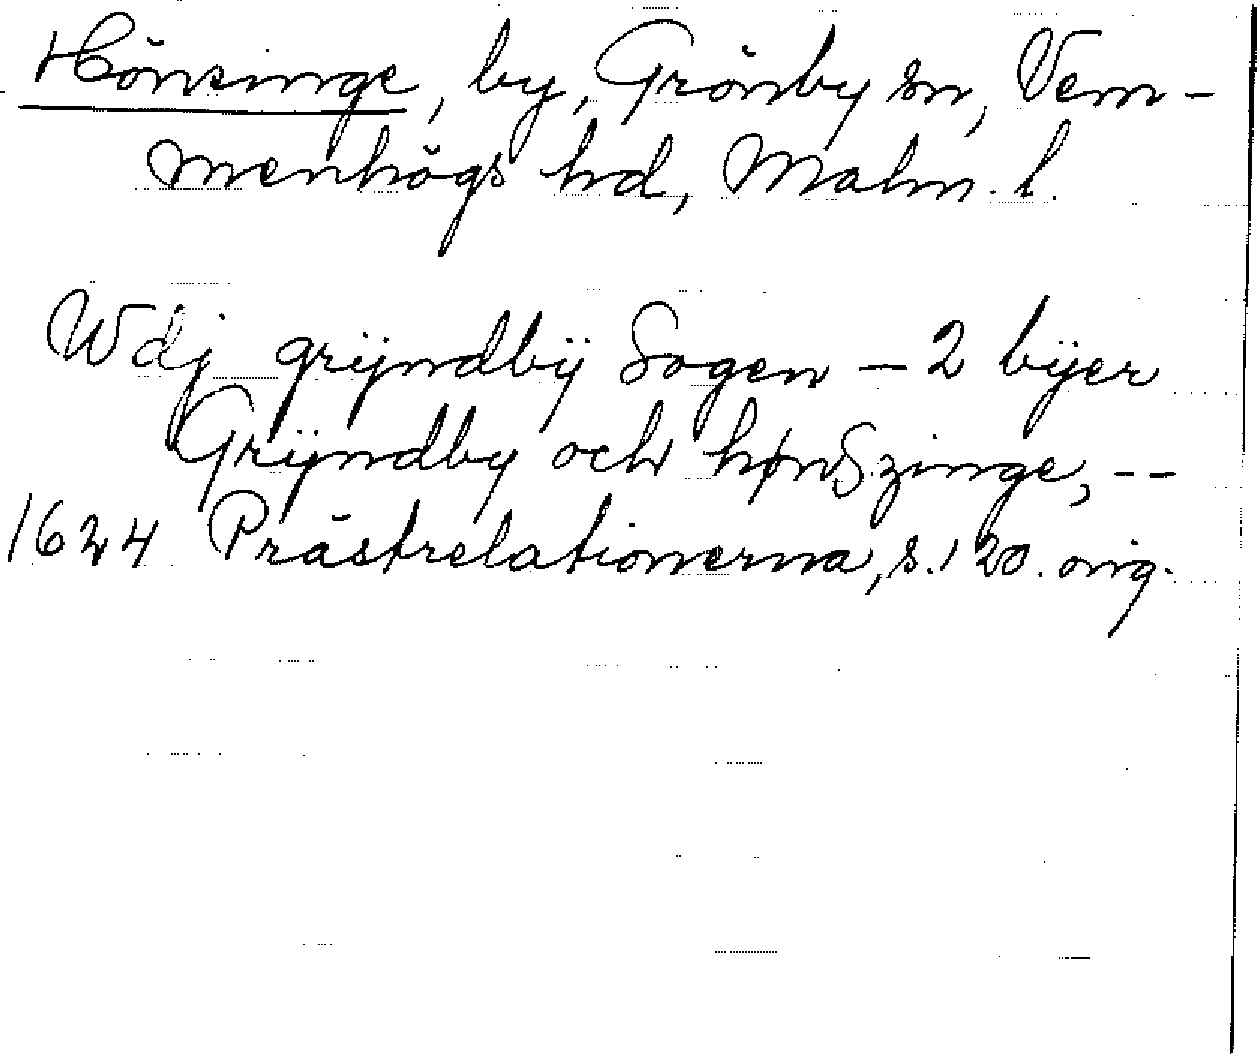 Hönsinge, by, Grönby sn, Vem-
menhögs hd, Malm. l.
Wdj grÿndbÿ Sogen – 2 bÿer
Grÿndby och hønSzinge, --
1624 Prästrelationerna, s. 120. orig.